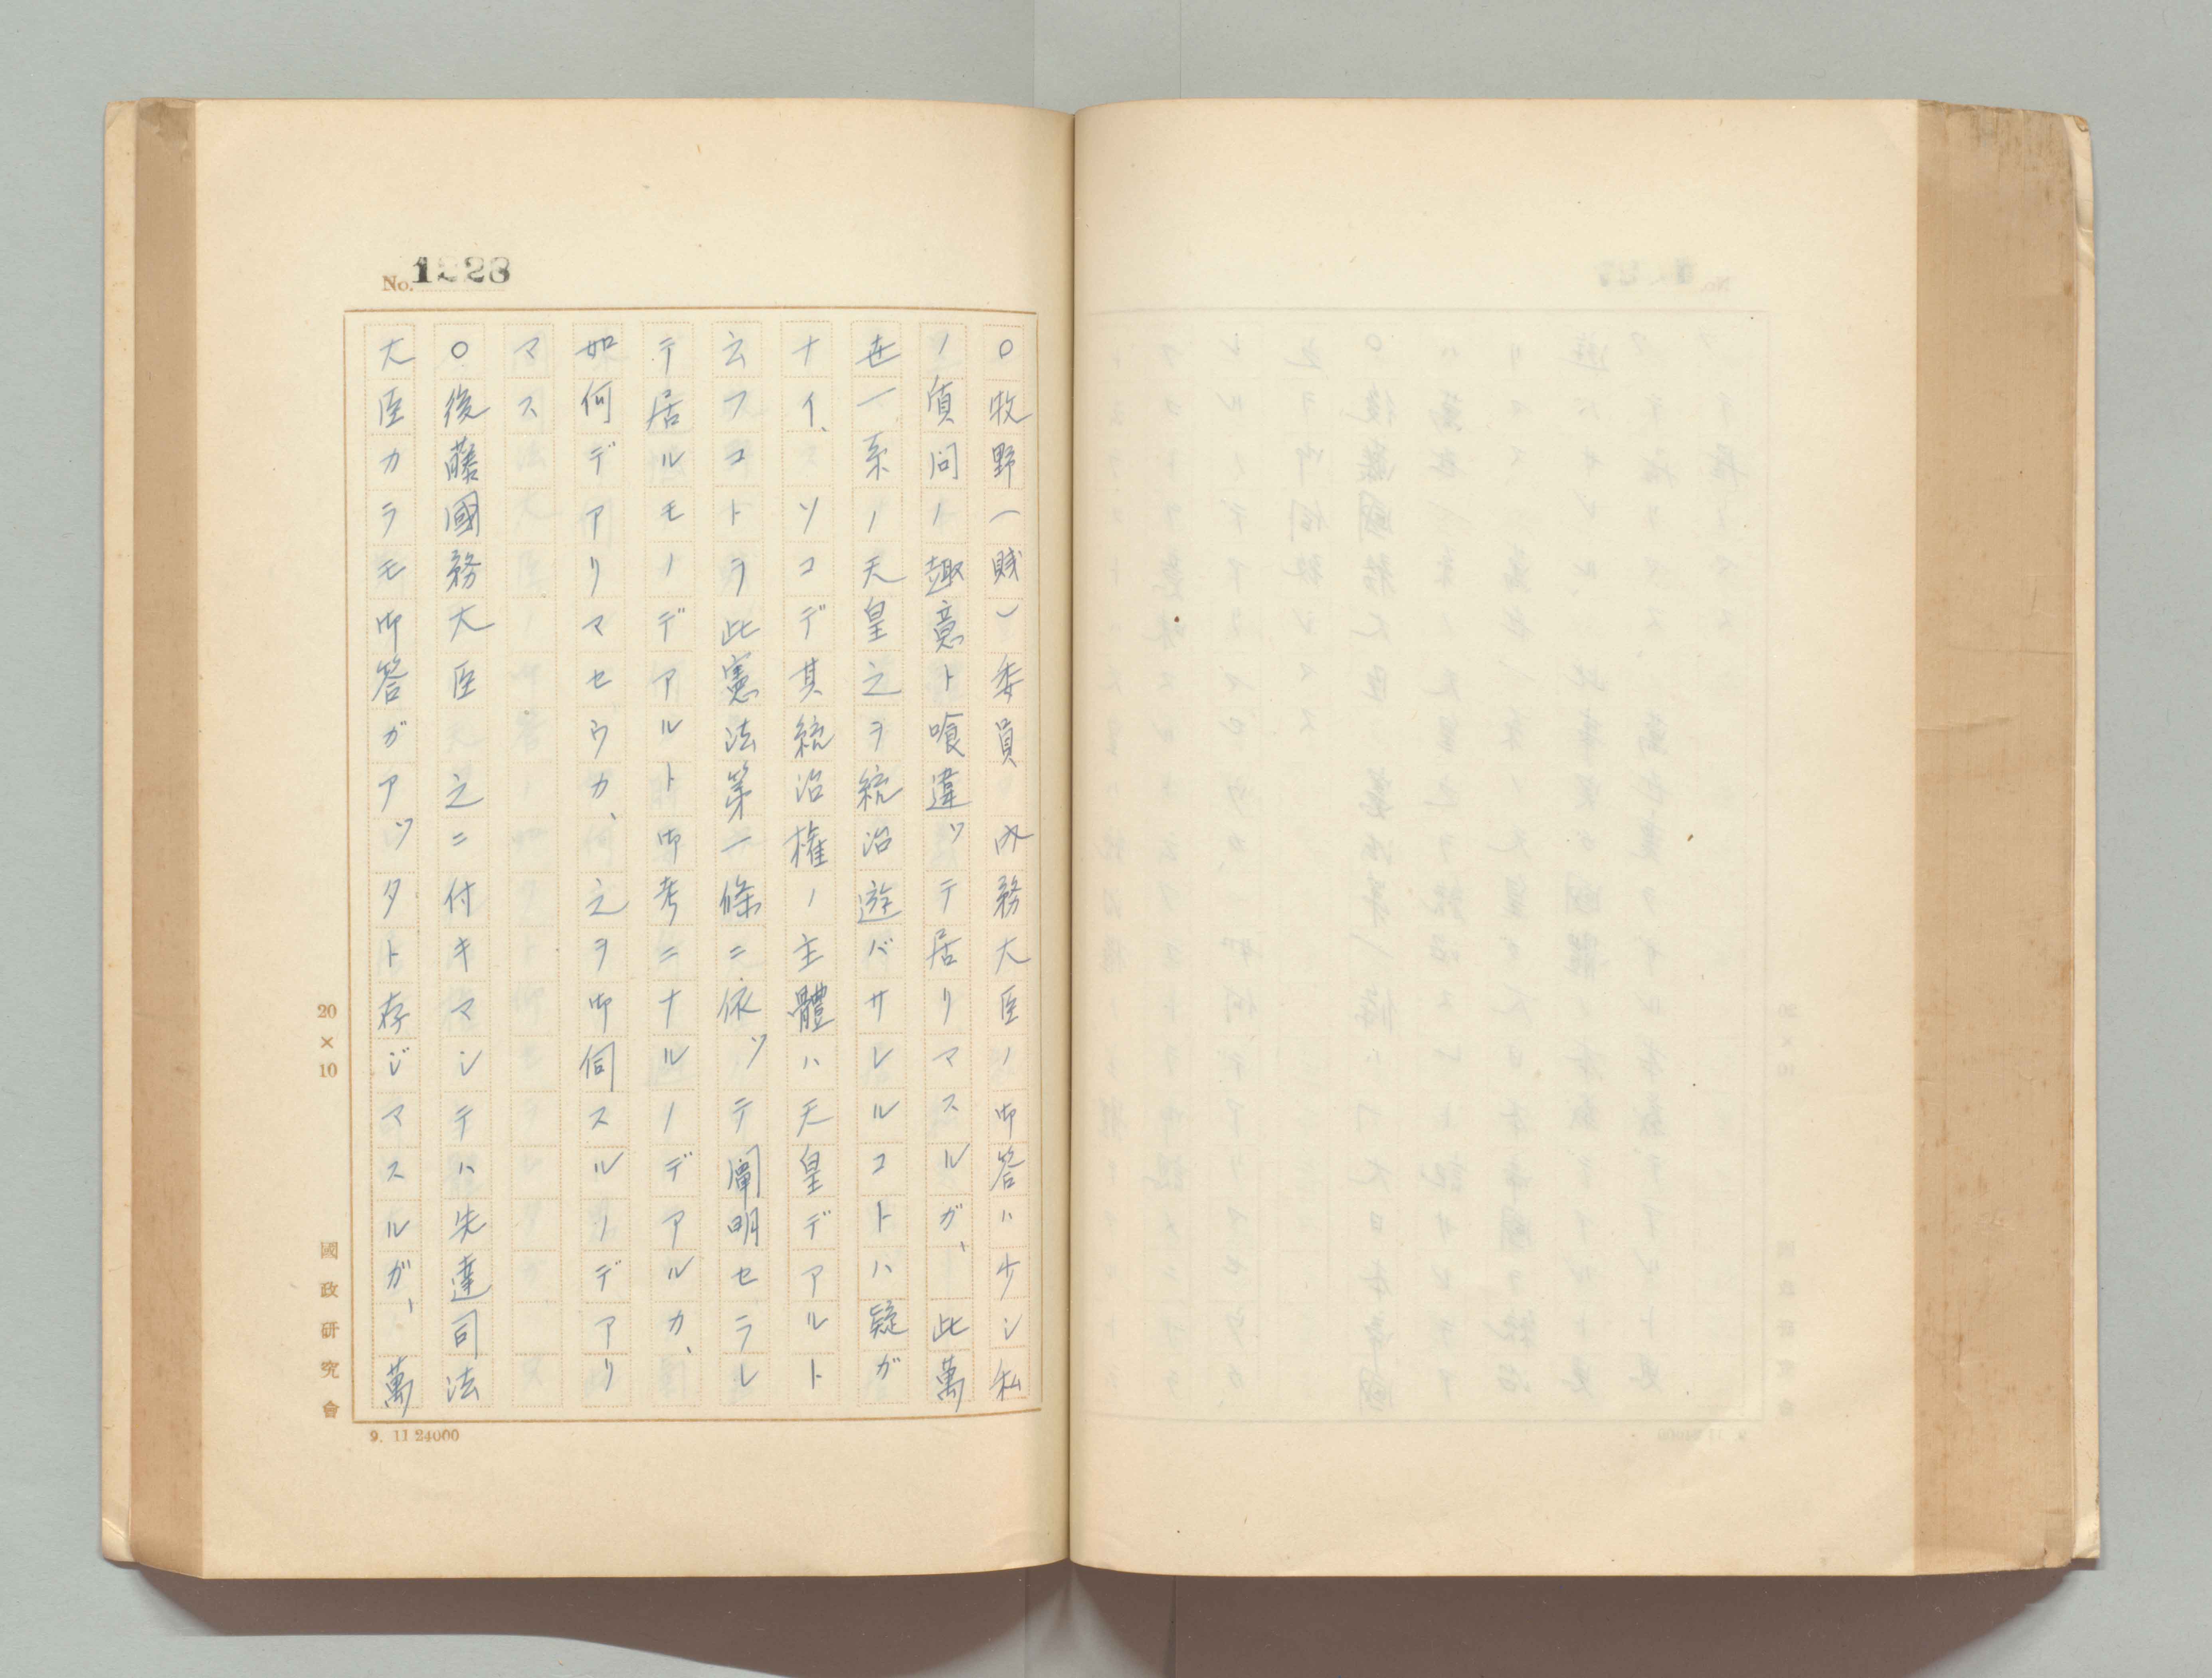 No. 1223
○牧野(賤)委員　内務大臣ノ御答ハ少シ私
ノ質問ノ趣意ト喰違ッテ居リマスルガ、此萬
世一系ノ天皇之ヲ統治遊バサレルコトハ疑ガ
ナイ、ソコデ其統治権ノ主體ハ天皇デアルト
云フコトヲ此憲法第一條ニ依ッテ闡明セラレ
テ居ルモノデアルト御考ニナルノデアルカ、
如何デアリマセウカ、之ヲ御伺スルノデアリ
マス
○後藤國務大臣　之ニ付キマシテハ先達司法
大臣カラモ御答ガアッタト存ジマスルガ、萬
20×10
國政研究會
9. 11 24000